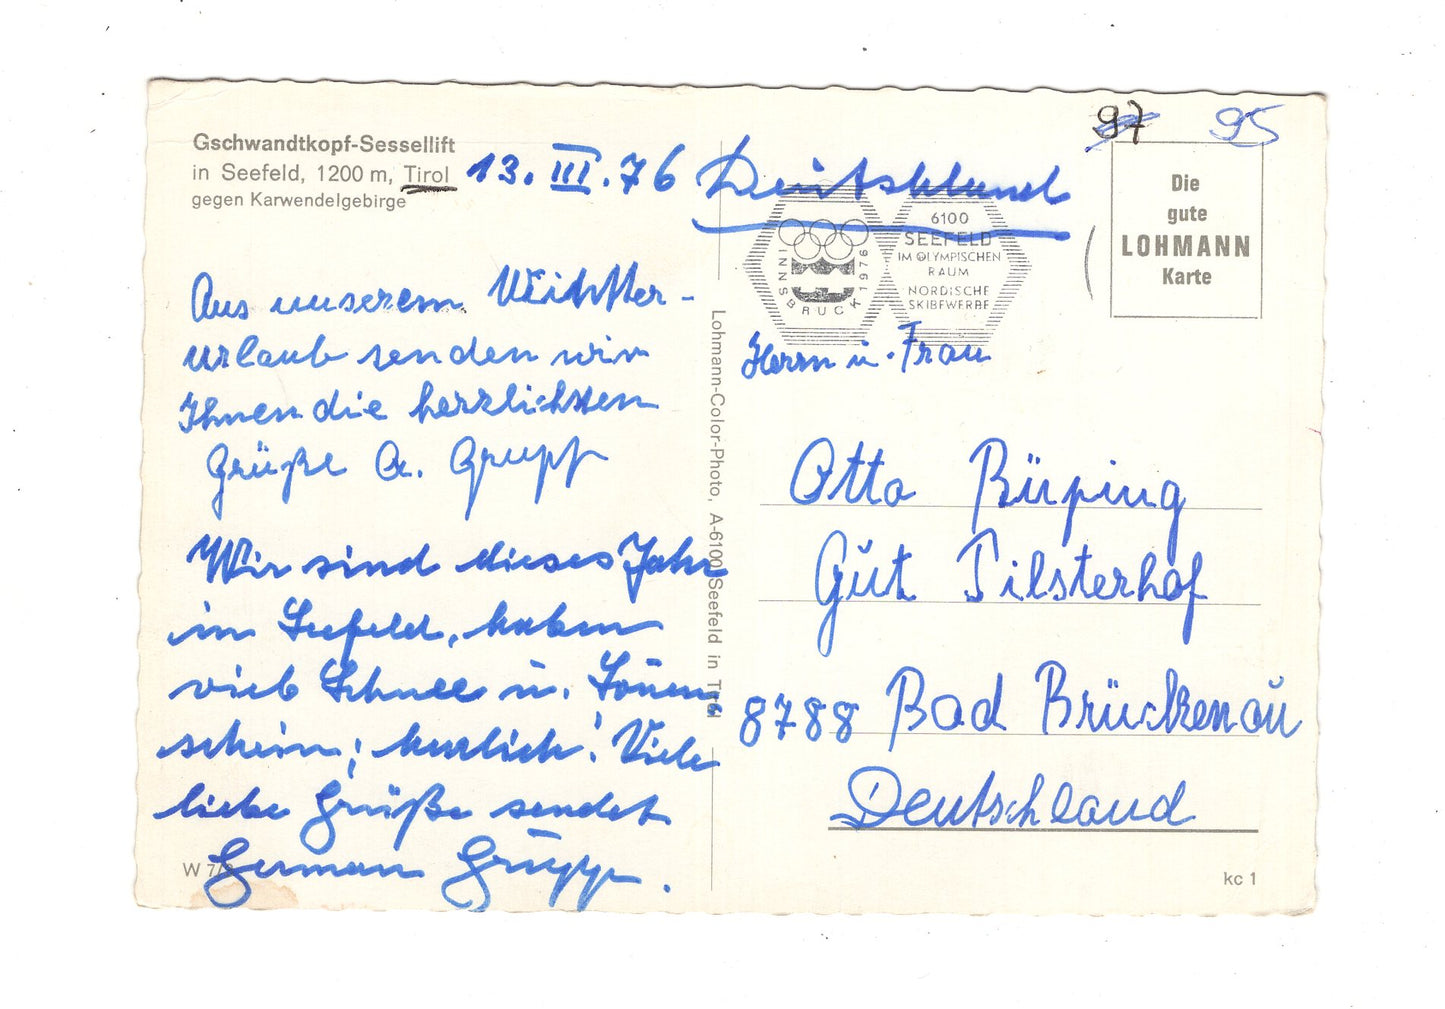 Gschwandtkopf-Sessellift
in Seefeld, 1200 m, Tirol
gegen Karwendelgebirge
13. III. 76
Aus unserem
urlaub senden wir
Ihnen die herzlichsten
Grüße A. Grupp
Wir sind dieses Jahr
in Seefeld, haben
viel Schnee u. Sonnen
schein, herrlich! Viele
liebe Grüße sendet
Herman Grupp.
W 7/
Lohmann-Color-Photo, A-6100 Seefeld in Tirol
97 95
Deutschland
Die
gute
LOHMANN
Karte
INNSBRUCK 1976
6100
SEEFELD
IM OLYMPISCHEN
RAUM
NORDISCHE
SKIBEWERBE
Herrn u. Frau
Otto Rüping
Gut Pilsterhof
8788 Bad Brückenau
Deutschland
kc 1